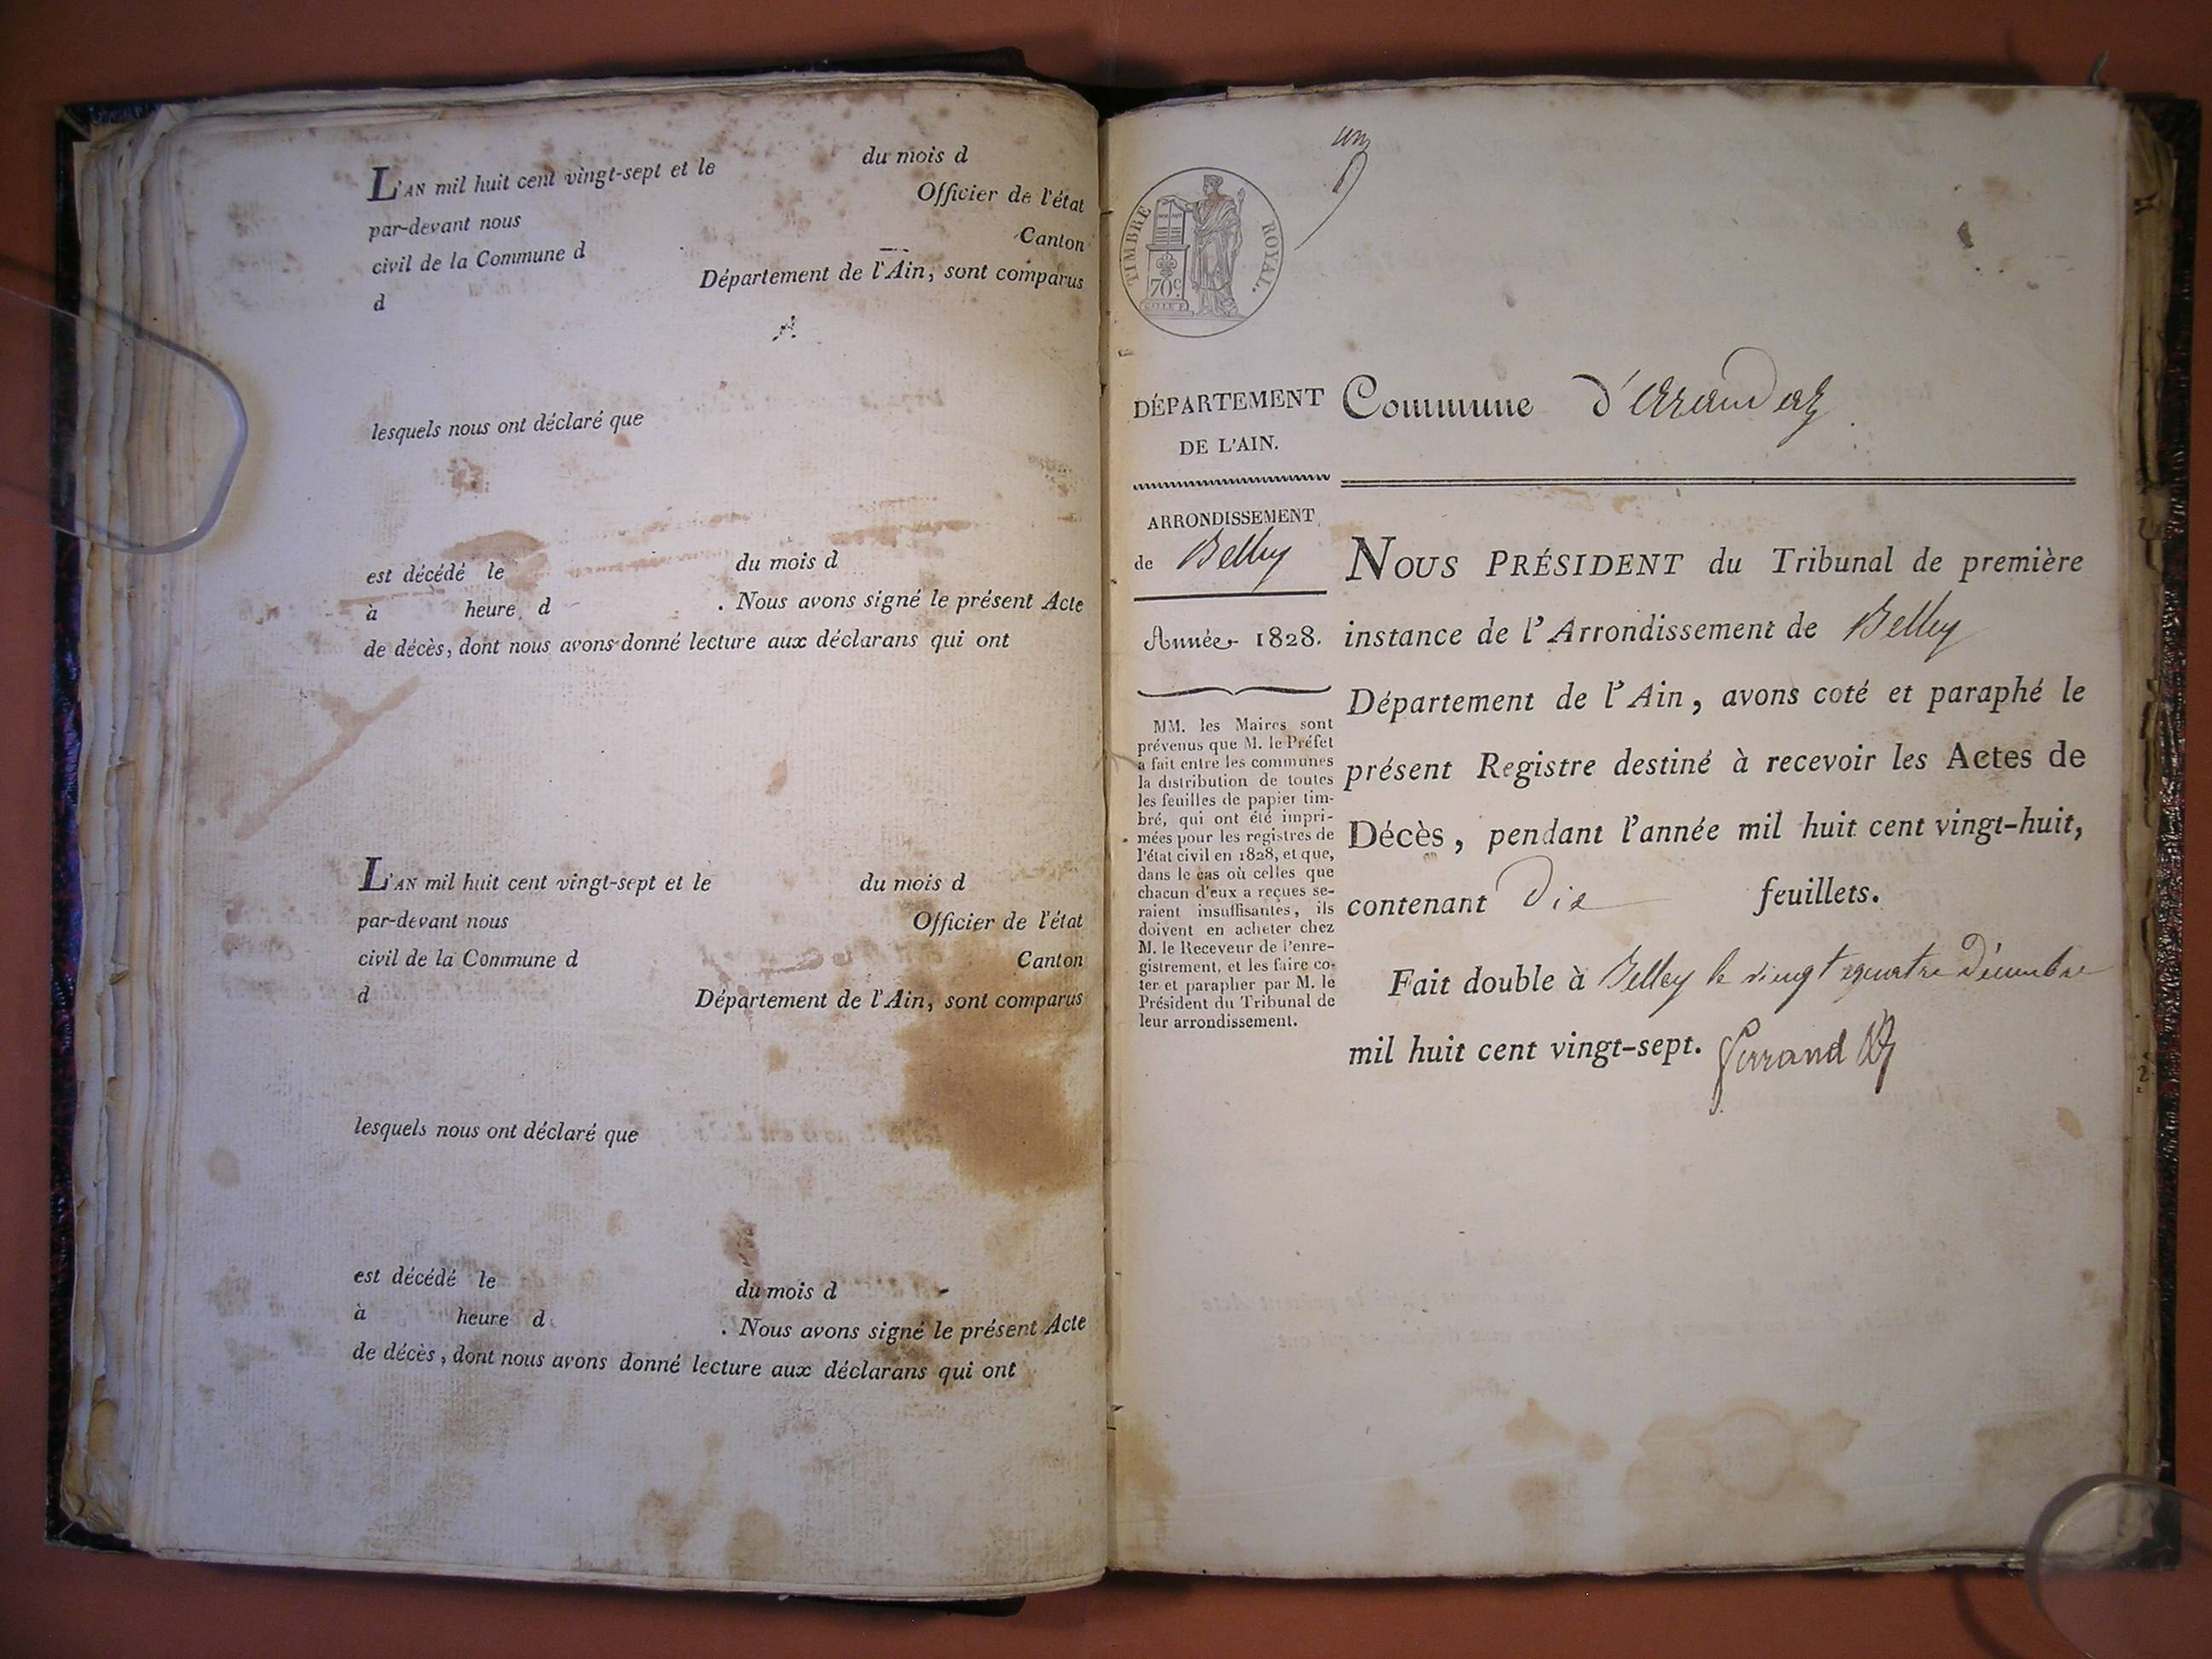 L'AN mil huit cent vingt-sept et le du mois d
par-devant nous Officier de l'état
civil de la Commune d Canton
d Département de l'Ain, sont comparus
lesquels nous ont déclaré que
est décédé le du mois d
à heure d . Nous avons signé le présent Acte
de décès, dont nous avons donné lecture aux déclarans qui ont
L'AN mil huit cent vingt-sept et le du mois d
par-devant nous Officier de l'état
civil de la Commune d Canton
d Département de l'Ain, sont comparus
lesquels nous ont déclaré que
est décédé le du mois d
à heure d . Nous avons signé le présent Acte
de décès, dont nous avons donné lecture aux déclarans qui ont
un
TIMBRE ROYAL.
70c
DÉPARTEMENT
DE L'AIN.
ARRONDISSEMENT
de Belley
Année 1828.
MM. les Maires sont
prévenus que M. le Préfet
a fait entre les communes
la distribution de toutes
les feuilles de papier tim-
bré, qui ont été impri-
mées pour les registres de
l'état civil en 1828, et que,
dans le cas où celles que
chacun d'eux a reçues se-
raient insuffisantes, ils
doivent en acheter chez
M. le Receveur de l'enre-
gistrement, et les faire co-
ter et parapher par M. le
Président du Tribunal de
leur arrondissement.
Commune d'Arandaz
NOUS PRÉSIDENT du Tribunal de première
instance de l'Arrondissement de Belley
Département de l'Ain, avons coté et paraphé le
présent Registre destiné à recevoir les Actes de
Décès, pendant l'année mil huit cent vingt-huit,
contenant Dix feuillets.
Fait double à Belley le vingt quatre Décembre
mil huit cent vingt-sept.